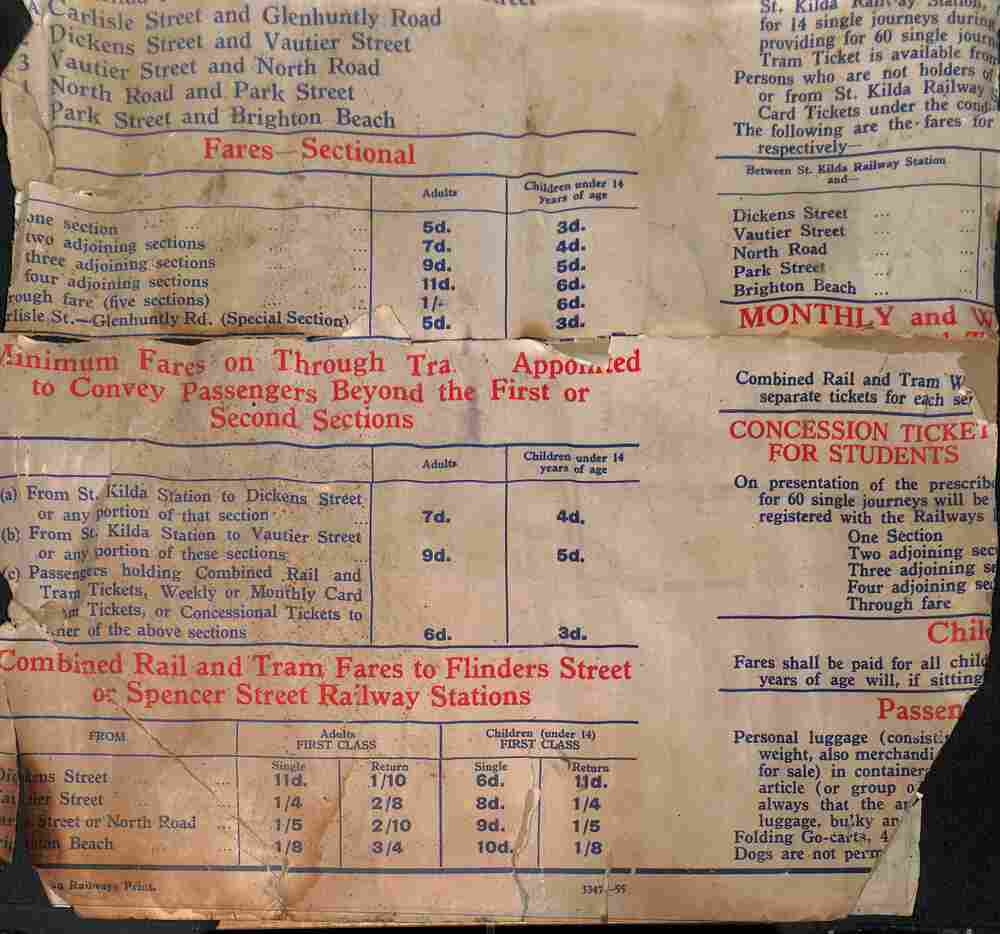 Carlisle Street and Glenhuntly Road
Dickens Street and Vautier Street
3 Vautier Street and North Road
North Road and Park Street
Park Street and Brighton Beach
Fares—Sectional
Adults
Children under 14
years of age
one section ... ... ... 5d. 3d.
two adjoining sections ... ... 7d. 4d.
three adjoining sections ... ... 9d. 5d.
four adjoining sections ... ... 11d. 6d.
rough fare (five sections) ... ... 1/- 6d.
rlisle St.—Glenhuntly Rd. (Special Section) 5d. 3d.
Minimum Fares on Through Tra Appointed
to Convey Passengers Beyond the First or
Second Sections
Adults
Children under 14
years of age
(a) From St. Kilda Station to Dickens Street
or any portion of that section ... 7d. 4d.
(b) From St. Kilda Station to Vautier Street
or any portion of these sections ... 9d. 5d.
(c) Passengers holding Combined Rail and
Tram Tickets, Weekly or Monthly Card
Tickets, or Concessional Tickets to
ner of the above sections 6d. 3d.
Combined Rail and Tram Fares to Flinders Street
or Spencer Street Railway Stations
FROM
Adults
FIRST CLASS
Children (under 14)
FIRST CLASS
Single Return Single Return
Dickens Street ... 11d. 1/10 6d. 11d.
ier Street ... 1/4 2/8 8d. 1/4
Street or North Road ... 1/5 2/10 9d. 1/5
ton Beach ... 1/8 3/4 10d. 1/8
n Railways Print.
5347—55
St. Kilda Railway Station,
for 14 single journeys during
providing for 60 single journ
Tram Ticket is available from
Persons who are not holders of
or from St. Kilda Railway S
Card Tickets under the condi
The following are the fares for
respectively—
Between St. Kilda Railway Station
and—
Dickens Street ... ...
Vautier Street ... ...
North Road ... ...
Park Street ... ...
Brighton Beach ... ...
MONTHLY and W
Combined Rail and Tram W
separate tickets for each ser
CONCESSION TICKET
FOR STUDENTS
On presentation of the prescribe
for 60 single journeys will be
registered with the Railways
One Section
Two adjoining sec
Three adjoining se
Four adjoining sec
Through fare
Chil
Fares shall be paid for all child
years of age will, if sitting
Passen
Personal luggage (consisti
weight, also merchandi
for sale) in container
article (or group o
always that the ar
luggage, bulky ar
Folding Go-carts, 4
Dogs are not perm